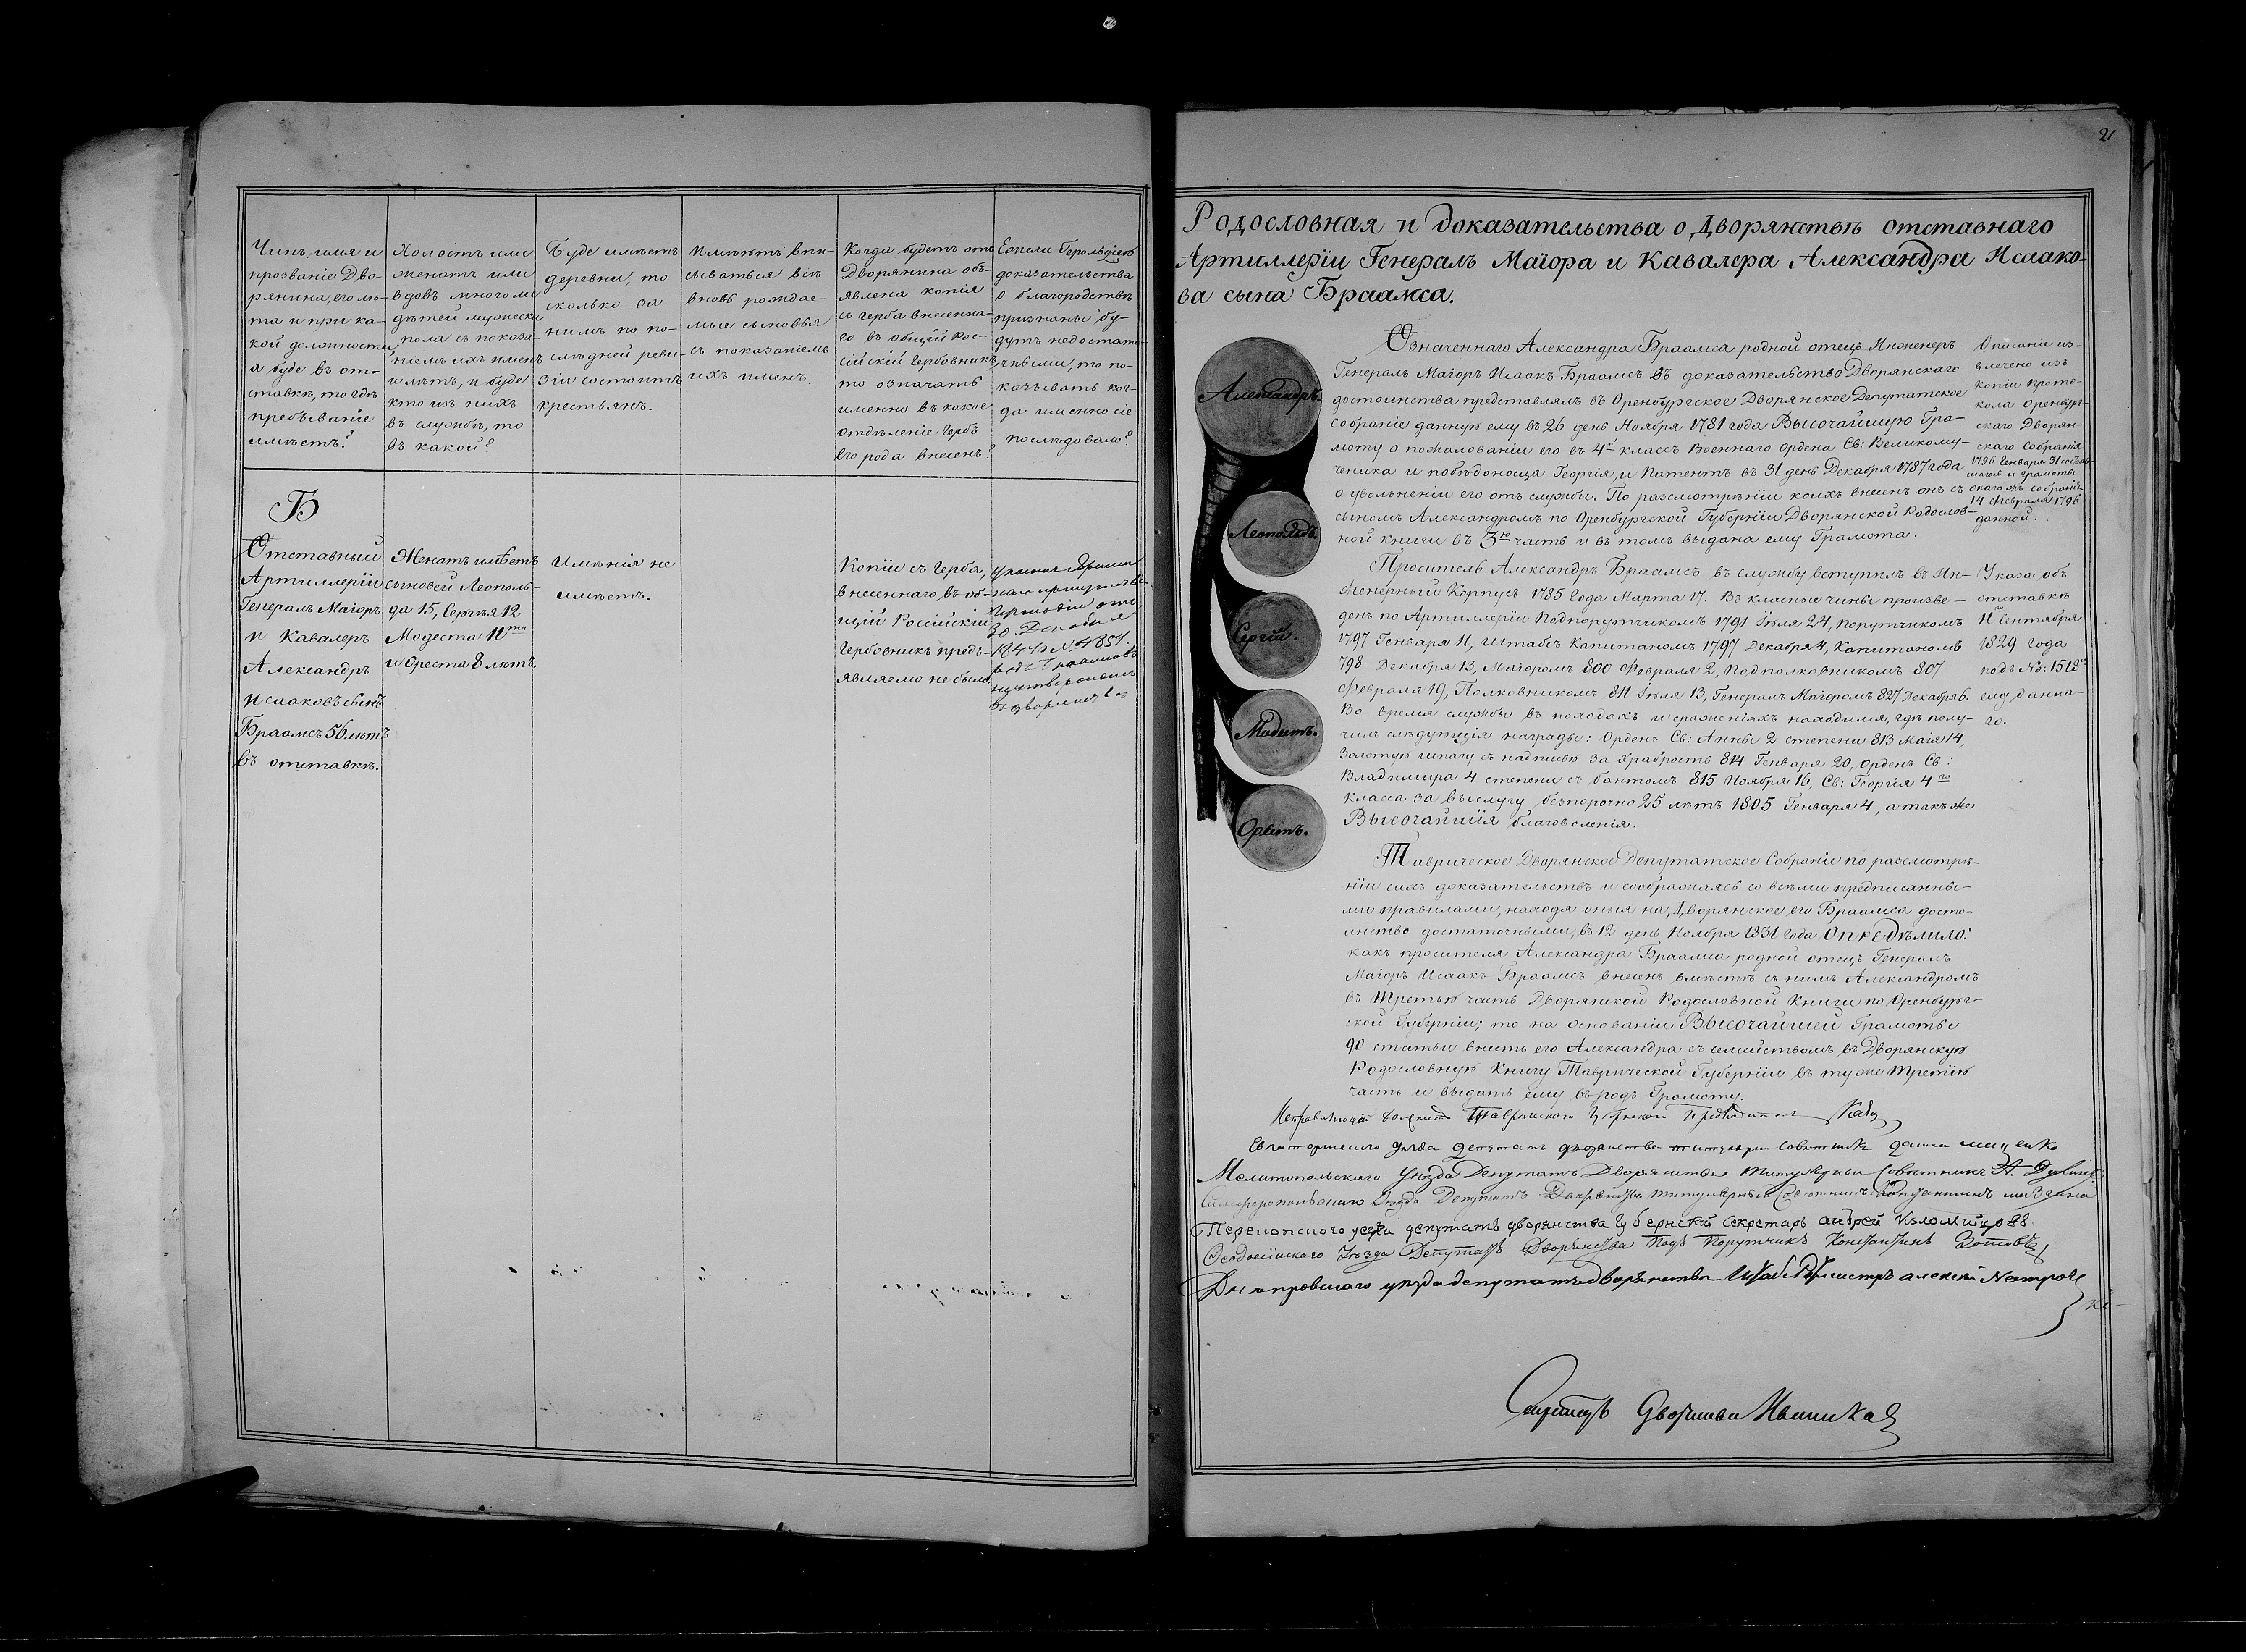 Чинъ, имя и
прозваніе Дво-
рянина, его лѣ-
та и при ка-
кой должности,
а буде въ от-
ставкѣ, то гдѣ
пребываніе
имѣетъ?
Холостъ или
женатъ или
вдовъ много ли
дѣтей мужеска
пола съ показа-
ніемъ ихъ именъ
и лѣтъ, и буде
кто изъ нихъ
въ службѣ, то
въ какой?
Буде имѣетъ
деревни, то
сколько за
нимъ по по-
слѣдней реви-
зіи состоитъ
крестьянъ.
Имѣютъ впи-
сываться всѣ
вновь рождае-
мые сыновья
съ показаніемъ
ихъ именъ.
Когда будетъ отъ
Дворянина объ-
явлена копія
съ герба внесенна-
го въ общій Рос-
сійскій Гербовникъ,
то означать
именно въ какое
отдѣленіе гербъ
его рода внесенъ?
Ежели Герольдіею
доказательства
о благородствѣ
признаны бу-
дутъ недостато-
чными, то по-
казывать ког-
да именно сіе
послѣдовало?
Б
Отставный
Артиллеріи
Генералъ Маіоръ
и Кавалеръ
Александръ
Исааковъ сынъ
Браамсъ 56 лѣтъ
въ отставкѣ.
Женатъ имѣетъ
сыновей Леополь-
да 15, Сергѣя 12
Модеста 11ти
и Ореста 8 лѣтъ.
Имѣнія не
имѣетъ.
Копіи съ герба,
внесеннаго въ об-
щій Россійскій
Гербовникъ предъ-
являемо не было.
Герольдіи отъ
30 Декабря
родъ Браамсовъ
21
Родословная и доказательства о Дворянствѣ отставнаго
Артиллеріи Генералъ Маіора и Кавалера Александра Исаако-
ва сына Браамса.
Александръ.
Леопольдъ.
Сергій.
Модестъ.
Орестъ.
Означеннаго Александра Браамса родной отецъ Инженеръ
Генералъ Маіоръ Исаакъ Браамсъ въ доказательство Дворянскаго
достоинства представлялъ въ Оренбургское Дворянское Депутатское
Собраніе данную ему въ 26 день Ноября 1781 года Высочайшую Гра-
моту о пожалованіи его въ 4й классъ Военнаго Ордена Св: Великому-
ченика и побѣдоносца Георгія, и Патентъ въ 31 день Декабря 1787 года
о увольненіи его отъ службы. По разсмотрѣніи коихъ внесенъ онъ съ
сыномъ Александромъ по Оренбургской Губерніи Дворянской Родослов-
ной книги въ 3ю часть и въ томъ выдана ему Грамота.
Описаніе из-
влечено изъ
копіи прото-
кола Оренбург-
скаго Дворян-
скаго Собранія
1796 Генваря 31
14 Февраля 1796
данной.
Проситель Александръ Браамсъ въ службу вступилъ въ Ин-
женерный Корпусъ 1785 года Марта 17. Въ класные чины произве-
денъ по Артиллеріи Подпорутчикомъ 1791 Іюля 24, Порутчикомъ
1797 Генваря 11, Штабсъ Капитаномъ 1797 Декабря 4, Капитаномъ
798 Декабря 13, Маіоромъ 800 Февраля 2, Подполковникомъ 807
Февраля 19, Полковникомъ 811 Іюля 13, Генералъ Маіоромъ 827 Декабря 6.
Во время службы въ походахъ и сраженіяхъ находился, гдѣ полу-
чилъ слѣдующія награды: Орденъ Св: Анны 2 степени 813 Маія 14,
Золотую шпагу съ надписью за храбрость 814 Генваря 20, Орденъ Св:
Владимира 4 степени съ бантомъ 815 Ноября 16, Св: Георгія 4го
класса за выслугу безпорочно 25 лѣтъ 1805 Генваря 4, а также
Высочайшія благоволенія.
Указа объ
отставкѣ
11го Сентября
1829 года
подъ №: 1518м
ему данна-
го.
Таврическое Дворянское Депутатское Собраніе по разсмотрѣ-
ніи сихъ доказательствъ и соображаясь со всѣми предписанны-
ми правилами, находя оныя на Дворянское его Браамса досто-
инство достаточными, въ 12 день Ноября 1831 года Опредѣлило:
какъ просителя Александра Браамса родной отецъ Генералъ
Маіоръ Исаакъ Браамсъ внесенъ вмѣстѣ съ нимъ Александромъ
въ Третью часть Дворянской Родословной Книги по Оренбург-
ской Губерніи; то на основаніи Высочайшей Грамоты
90 статьи внесть его Александра съ семействомъ въ Дворянскую
Родословную Книгу Таврической Губерніи въ туже Третію
часть и выдать ему въ родъ Грамоту.
Таврическаго Губернскаго Предводителя
уѣзда Депутатъ дворянства титулярный совѣтникъ
Мелитопольскаго Уѣзда Депутатъ Дворянства Титулярный Совѣтникъ
Симферопольскаго Уѣзда Депутатъ Дворянства титулярный Совѣтникъ
Перекопскаго уезда депутатъ дворянства губернскій секретарь андрей
Феодосійскаго Уѣзда Депутатъ Дворянства Подъ Порутчикъ Константинъ
Днепровскаго уѣзда депутатъ дворянства Штабс Ротмистръ алексей
Секретарь Дворянства